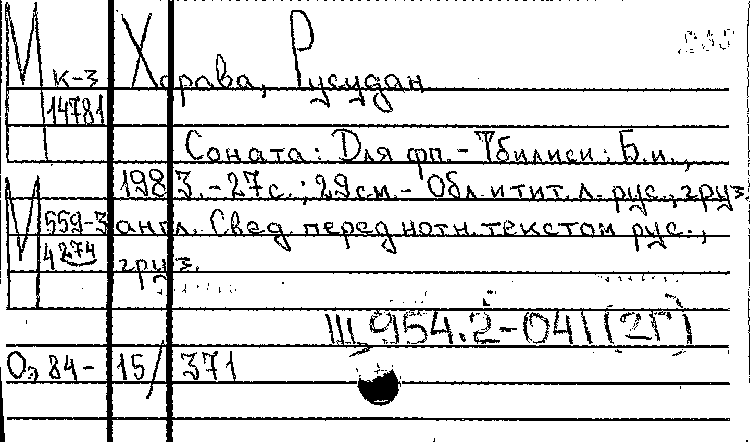 М Хорава, Русудан
К-3
14781
Соната: Для фп. - Тбилиси: Б.и.,
1983. - 27с.; 29см. - Обл. и тит. л. рус., груз.
М 559-3 англ. Свед. перед нотн. текстом рус.,
4274 груз.
Щ 954.2-041(2Г)
Оэ 84- 15/371